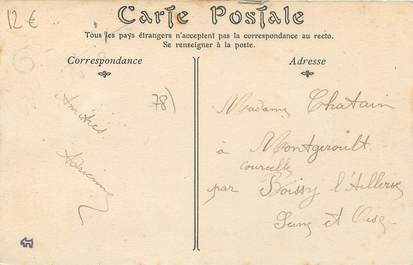 12€
Carte Postale
Tous les pays étrangers n'acceptent pas la correspondance au recto.
Se renseigner à la poste.
Correspondance
Adresse
78)
Amitiés
Adrienne
Madame Chatain
à Montgeroult
Courcelle
par Boissy l'Aillerie
Seine et Oise